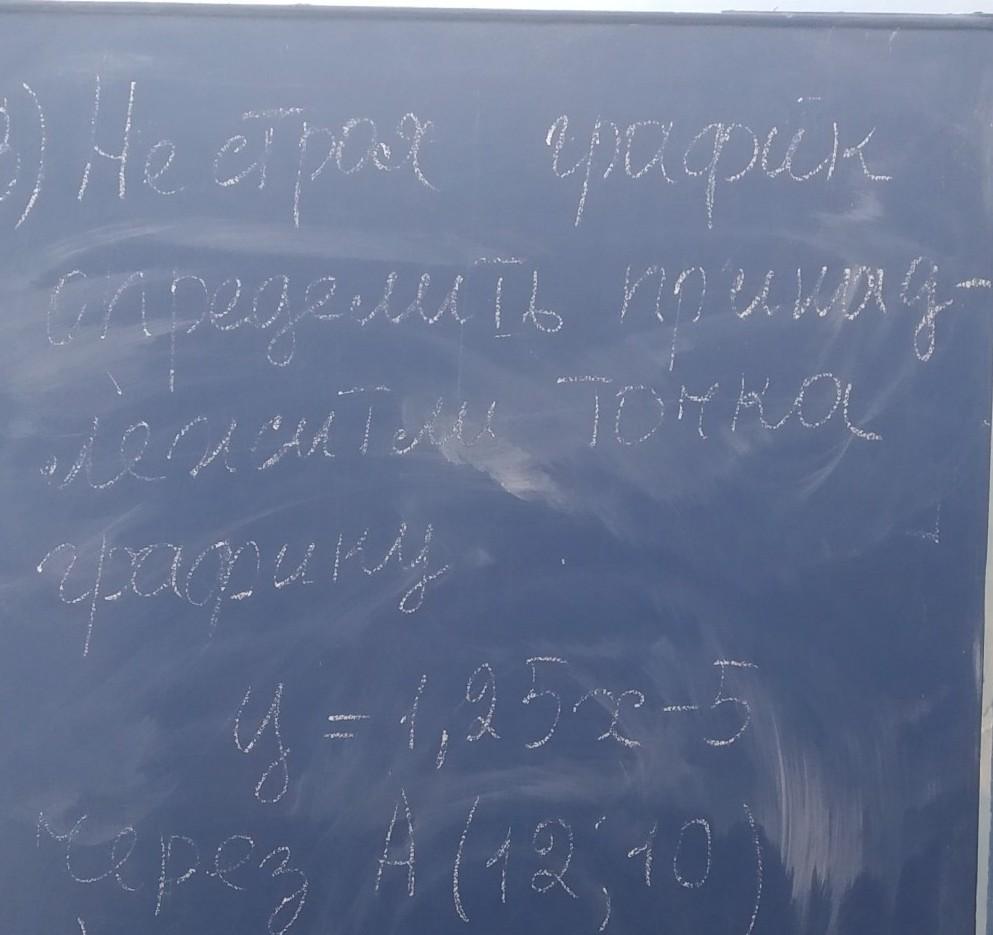 3) Не строя график
определить принад-
лежит ли точка
графику
y = 1,25x-5
через A (12; 10)